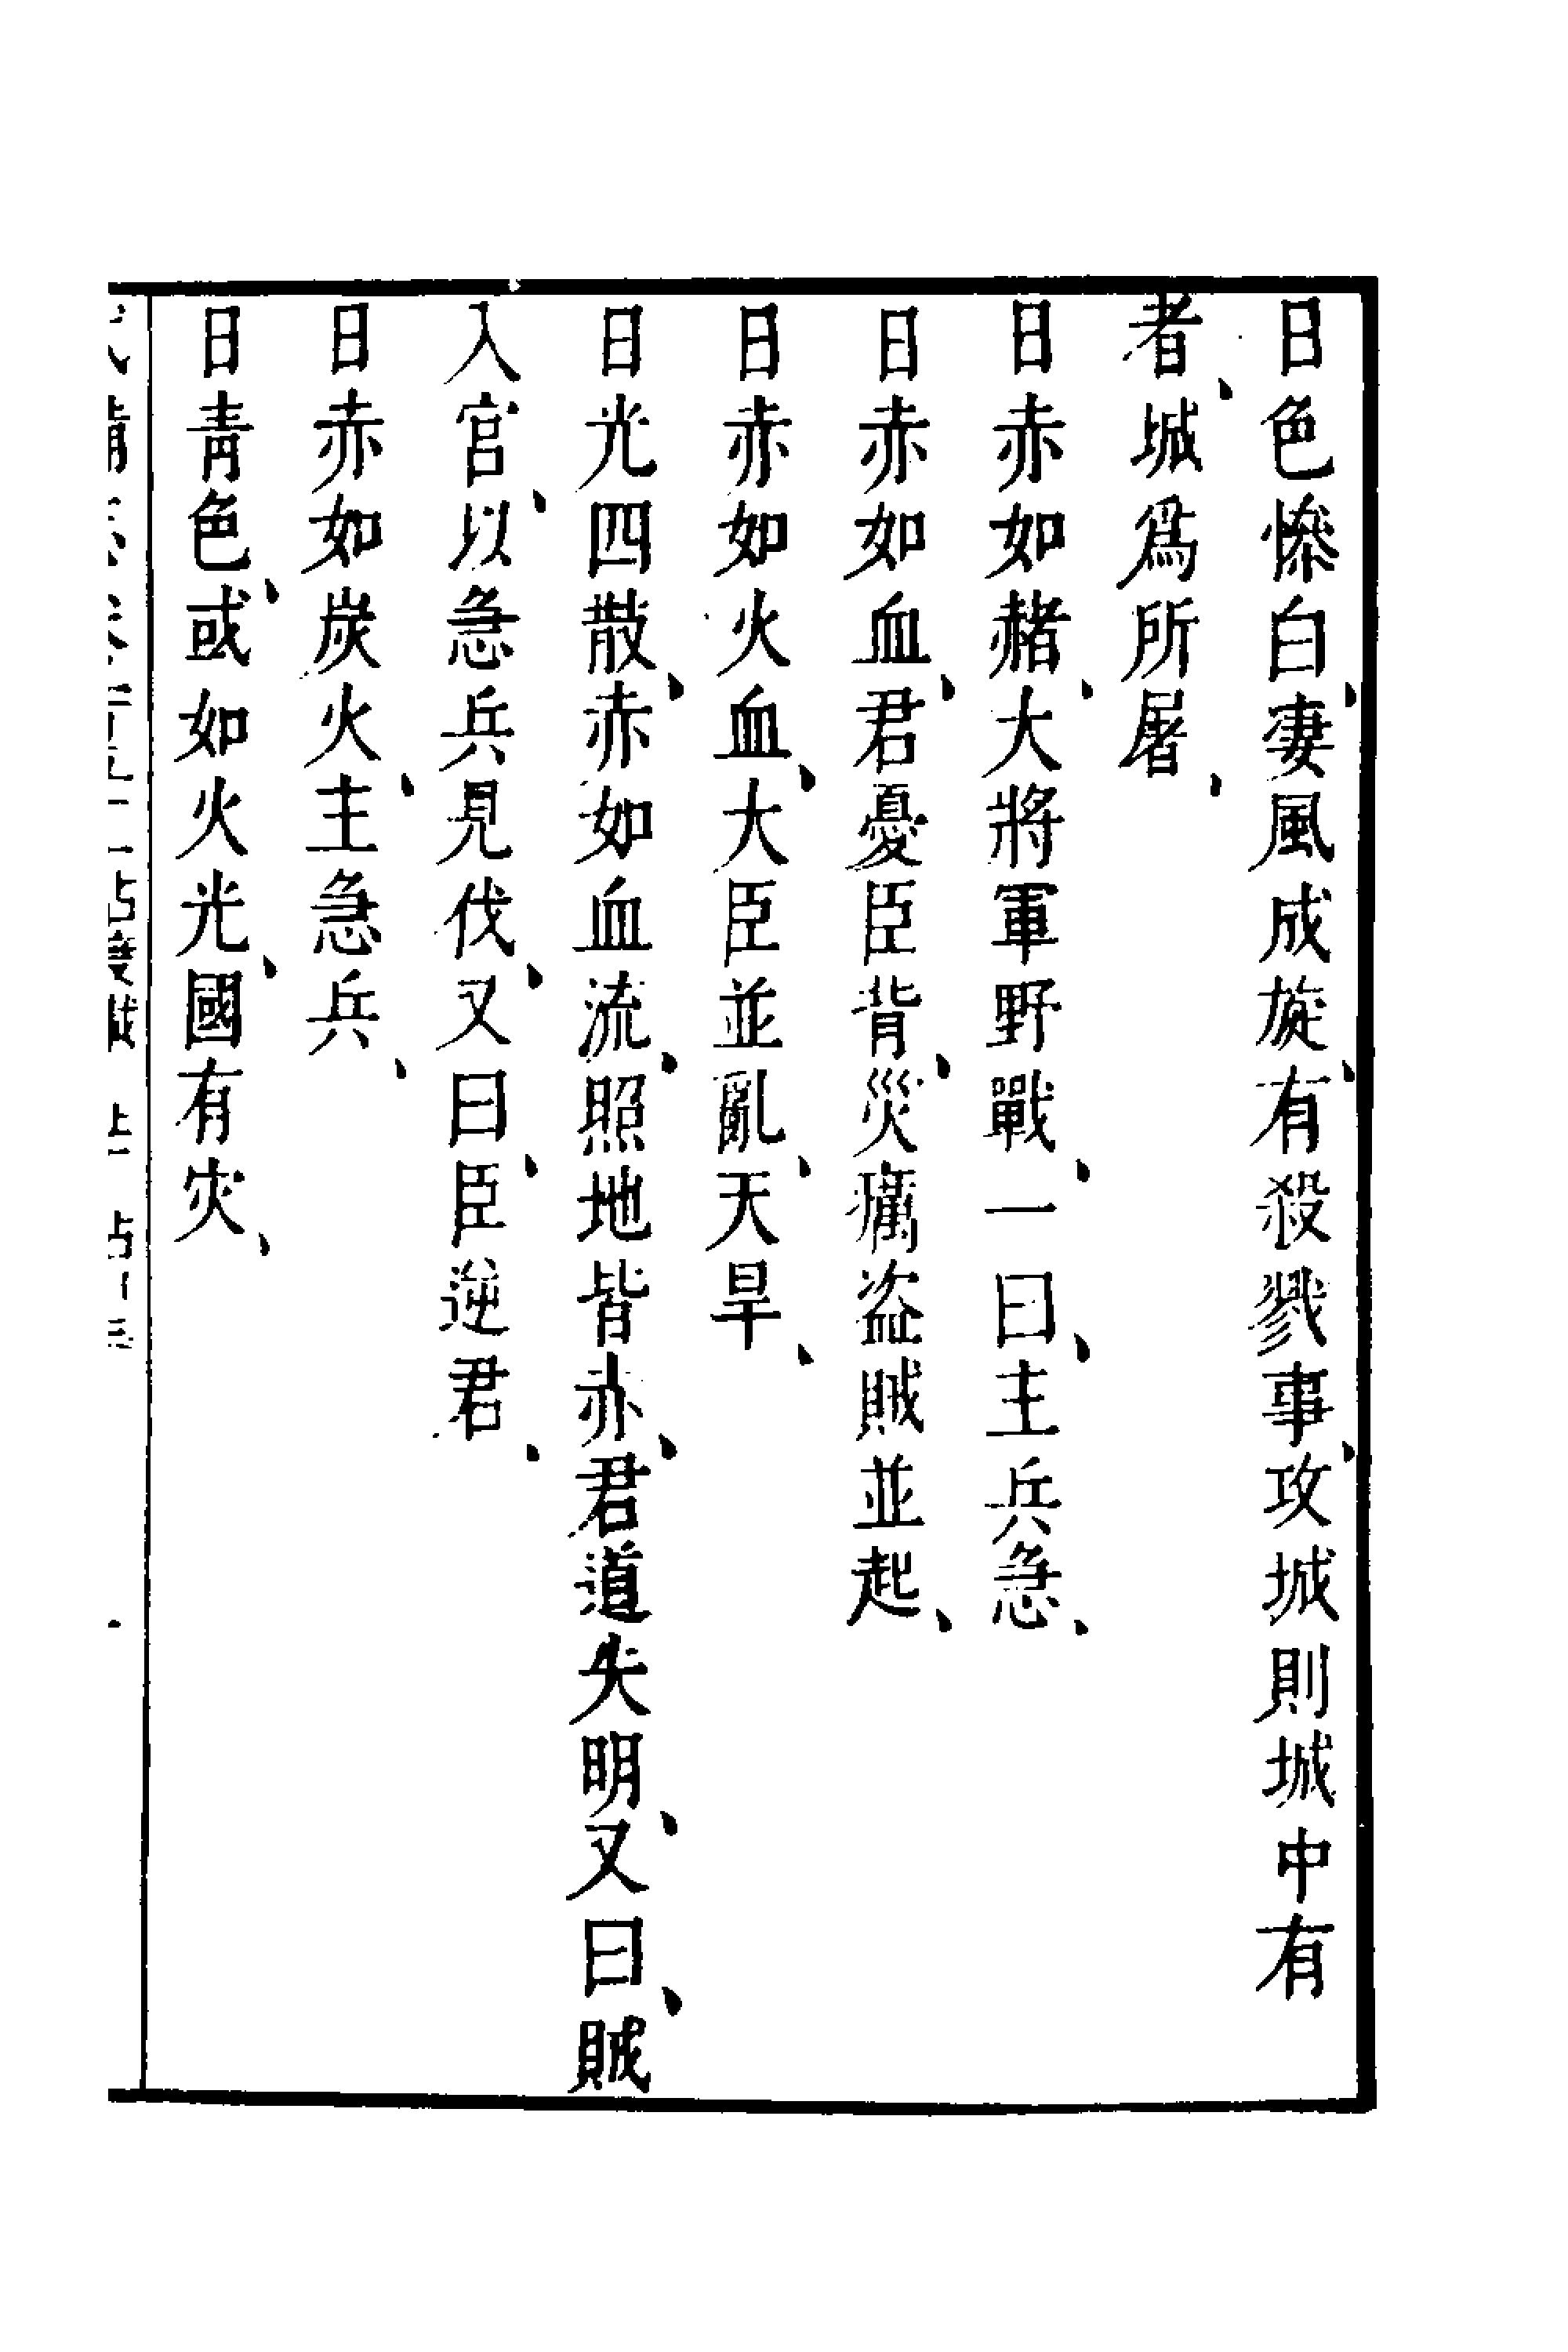 日色慘白、凄風成旋、有殺戮事、攻城則城中有
者、城爲所屠、
日赤如赭、大將軍野戰、一曰、主兵急、
日赤如血、君憂臣背、災癘盗賊並起、
日赤如火血、大臣並亂、天旱、
日光四散、赤如血流、照地皆赤、君道失明、又曰、賊
入宫、以急兵見伐、又曰、臣逆君、
日赤如炭火、主急兵、
日靑色、或如火光、國有灾、